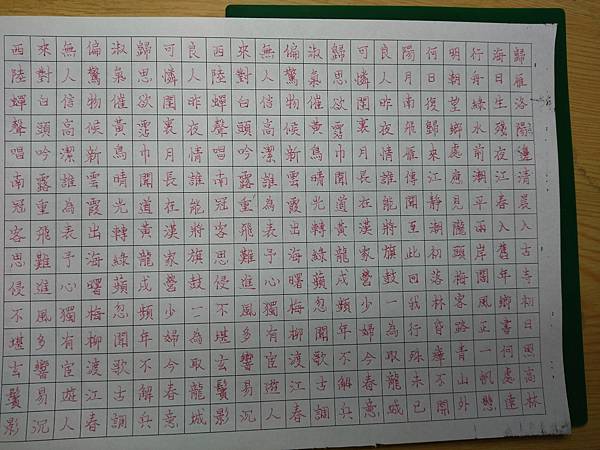 歸雁洛陽邊清晨入古寺初日照高林
海日生殘夜江春入舊年鄉書何處達
行舟綠水前潮平兩岸闊風正一帆懸
明潮望鄉處應見隴頭梅客路青山外
何日復歸來江靜潮初落林昏瘴不開
陽月南飛雁傳聞至此回我行殊未已
良人昨夜情誰能將旗鼓一為取龍城
可憐閨裏月長在漢家營少婦今春意
歸思欲霑巾聞道黃龍戍頻年不解兵
淑氣催黃鳥晴光轉綠蘋忽聞歌古調
偏驚物候新雲霞出海曙梅柳渡江春
無人信高潔誰為表予心獨有宦遊人
來對白頭吟露重飛難進風多響易沉
西陸蟬聲唱南冠客思侵不堪玄鬢影
良人昨夜情誰能將旗鼓一為取龍城
可憐閨裏月長在漢家營少婦今春意
歸思欲霑巾聞道黃龍戍頻年不解兵
淑氣催黃鳥晴光轉綠蘋忽聞歌古調
偏驚物候新雲霞出海曙梅柳渡江春
無人信高潔誰為表予心獨有宦遊人
來對白頭吟露重飛難進風多響易沉
西陸蟬聲唱南冠客思侵不堪玄鬢影